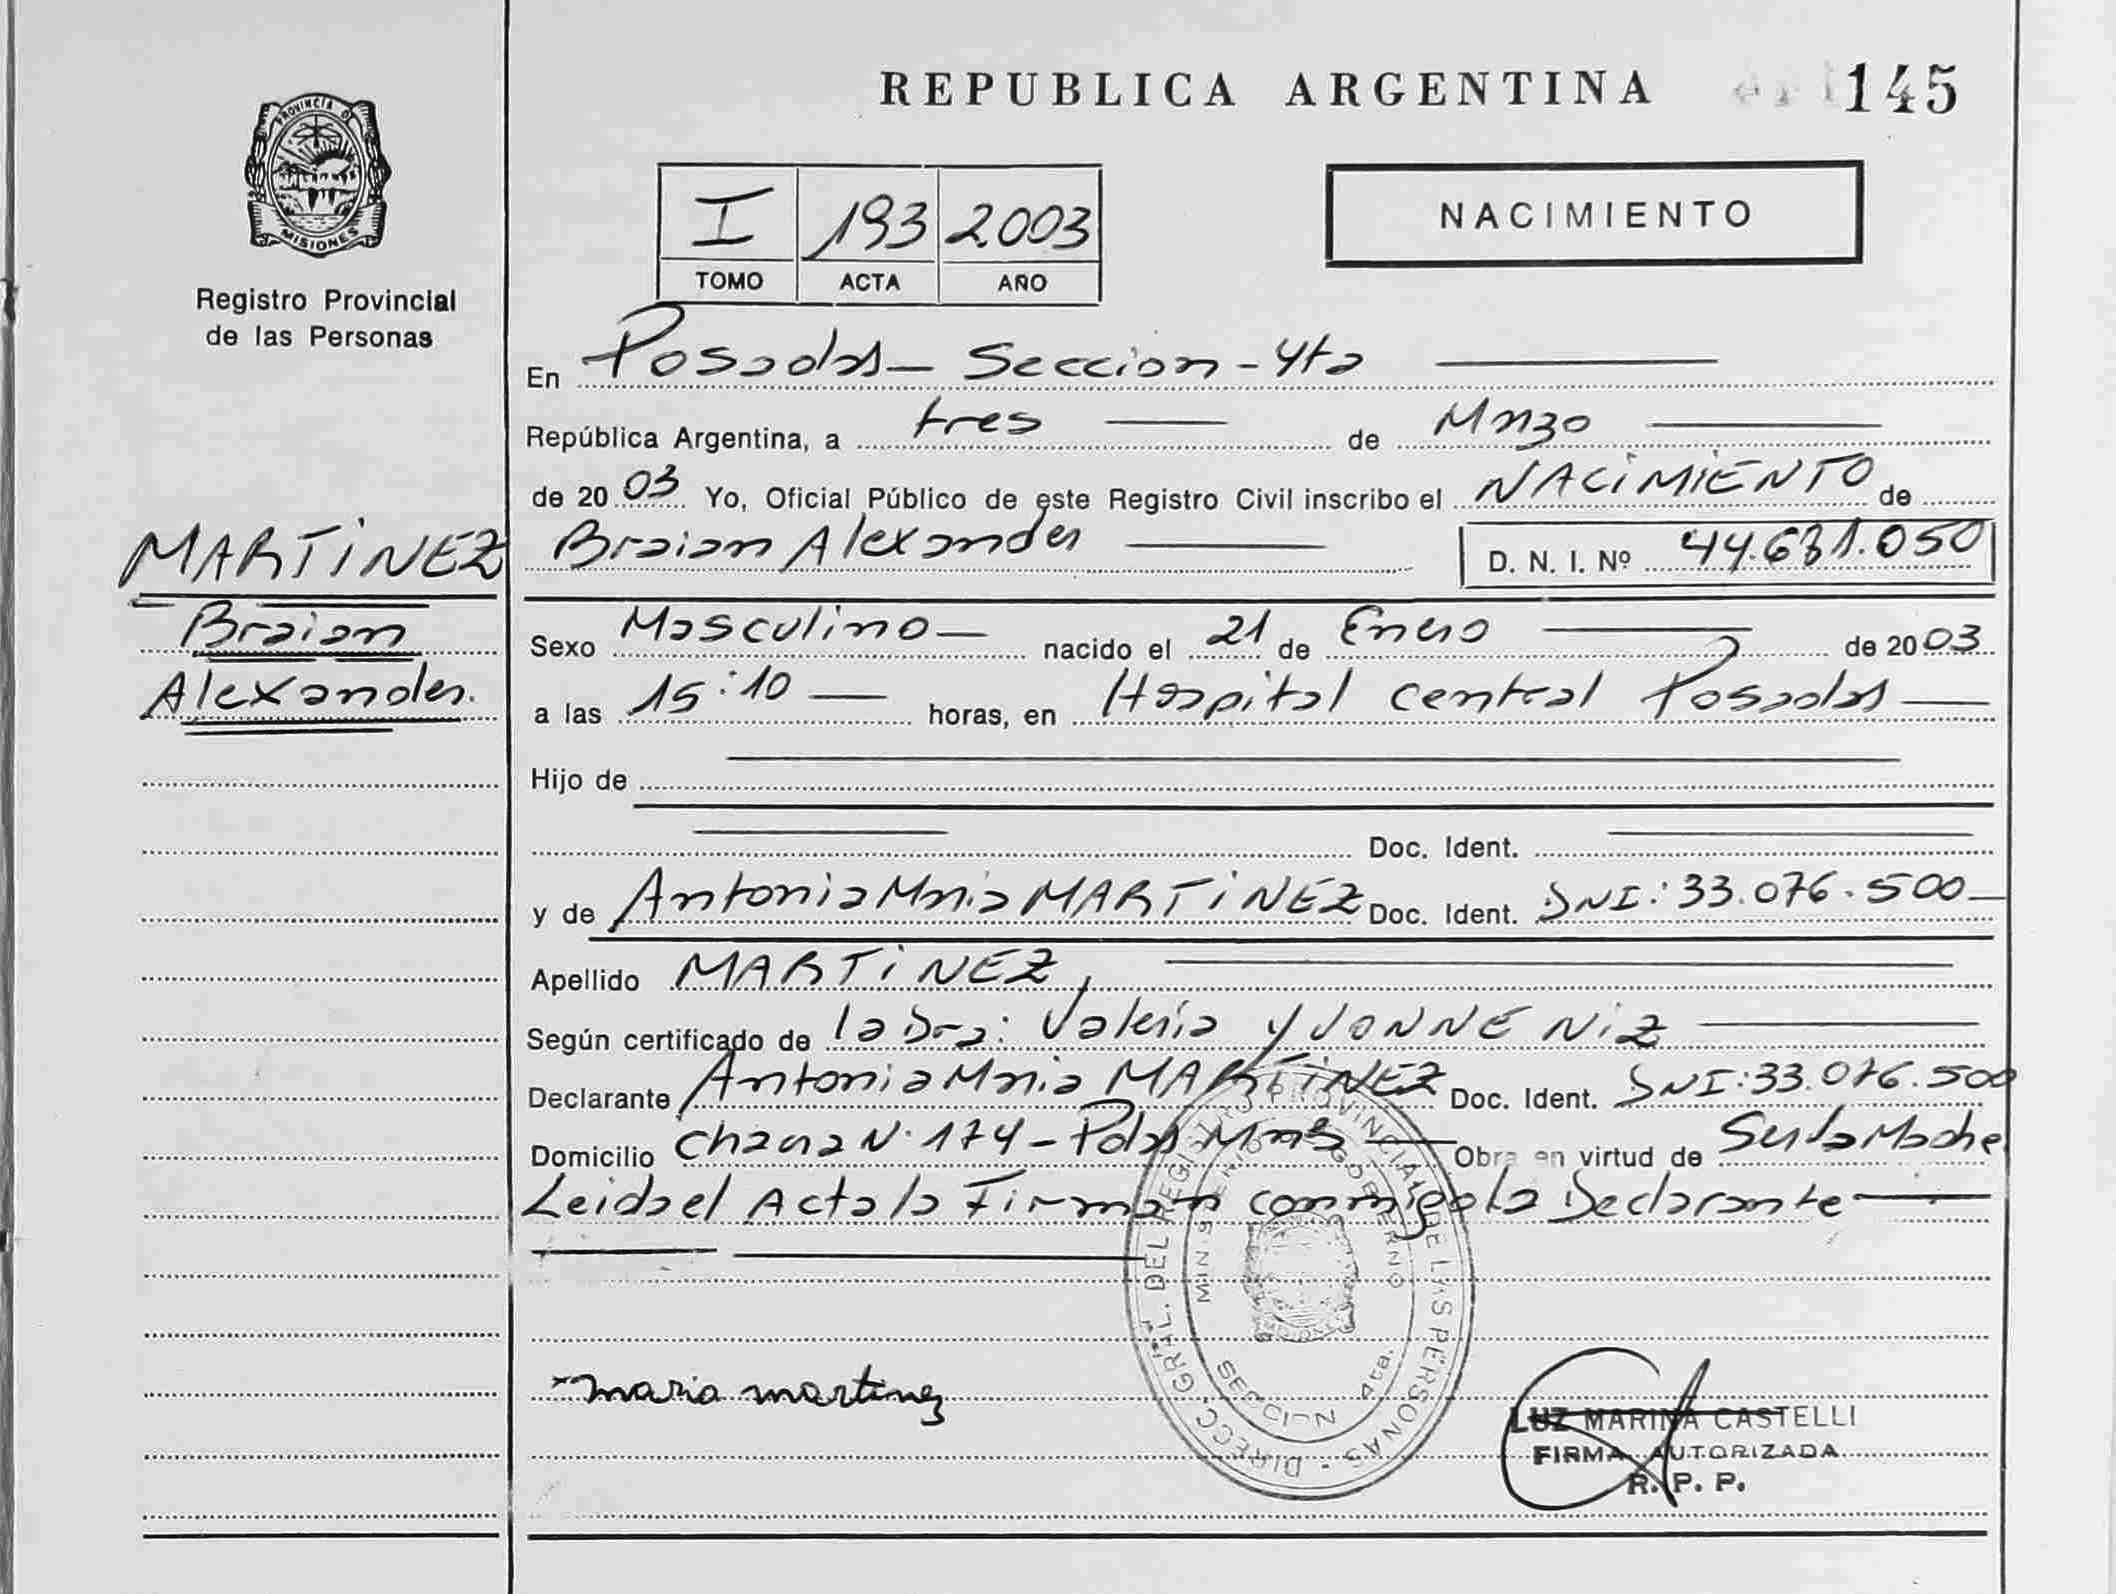 REPUBLICA ARGENTINA
145
PROVINCIA D
MISIONES
Registro Provincial
de las Personas
I 193 2003
TOMO ACTA AÑO
NACIMIENTO
En Posadas - Seccion - 4ta
República Argentina, a tres de Marzo
de 2003 Yo, Oficial Público de este Registro Civil inscribo el NACIMIENTO de
Braian Alexander D. N. I. Nº 44.631.050
MARTINEZ
Braian
Alexander.
Sexo Masculino nacido el 21 de Enero de 2003
a las 15:10 horas, en Hospital Central Posadas
Hijo de
Doc. Ident.
y de Antonia Maria MARTINEZ Doc. Ident. DNI: 33.076.500
Apellido MARTINEZ
Según certificado de la Dra: Valeria YVONNE NIZ
Declarante Antonia Maria MARTINEZ Doc. Ident. DNI: 33.076.500
Domicilio N° 174 - Pdas Mnes Obra en virtud de Ser la Madre
Leida el Acta la Firman conmigo la Declarante
DIRECC. GRAL. DEL REGISTRO PROVINCIAL DE LAS PERSONAS
MINISTERIO GOBIERNO
SECCION 4ta.
maria martinez
LUZ MARINA CASTELLI
FIRMA AUTORIZADA
R. P. P.